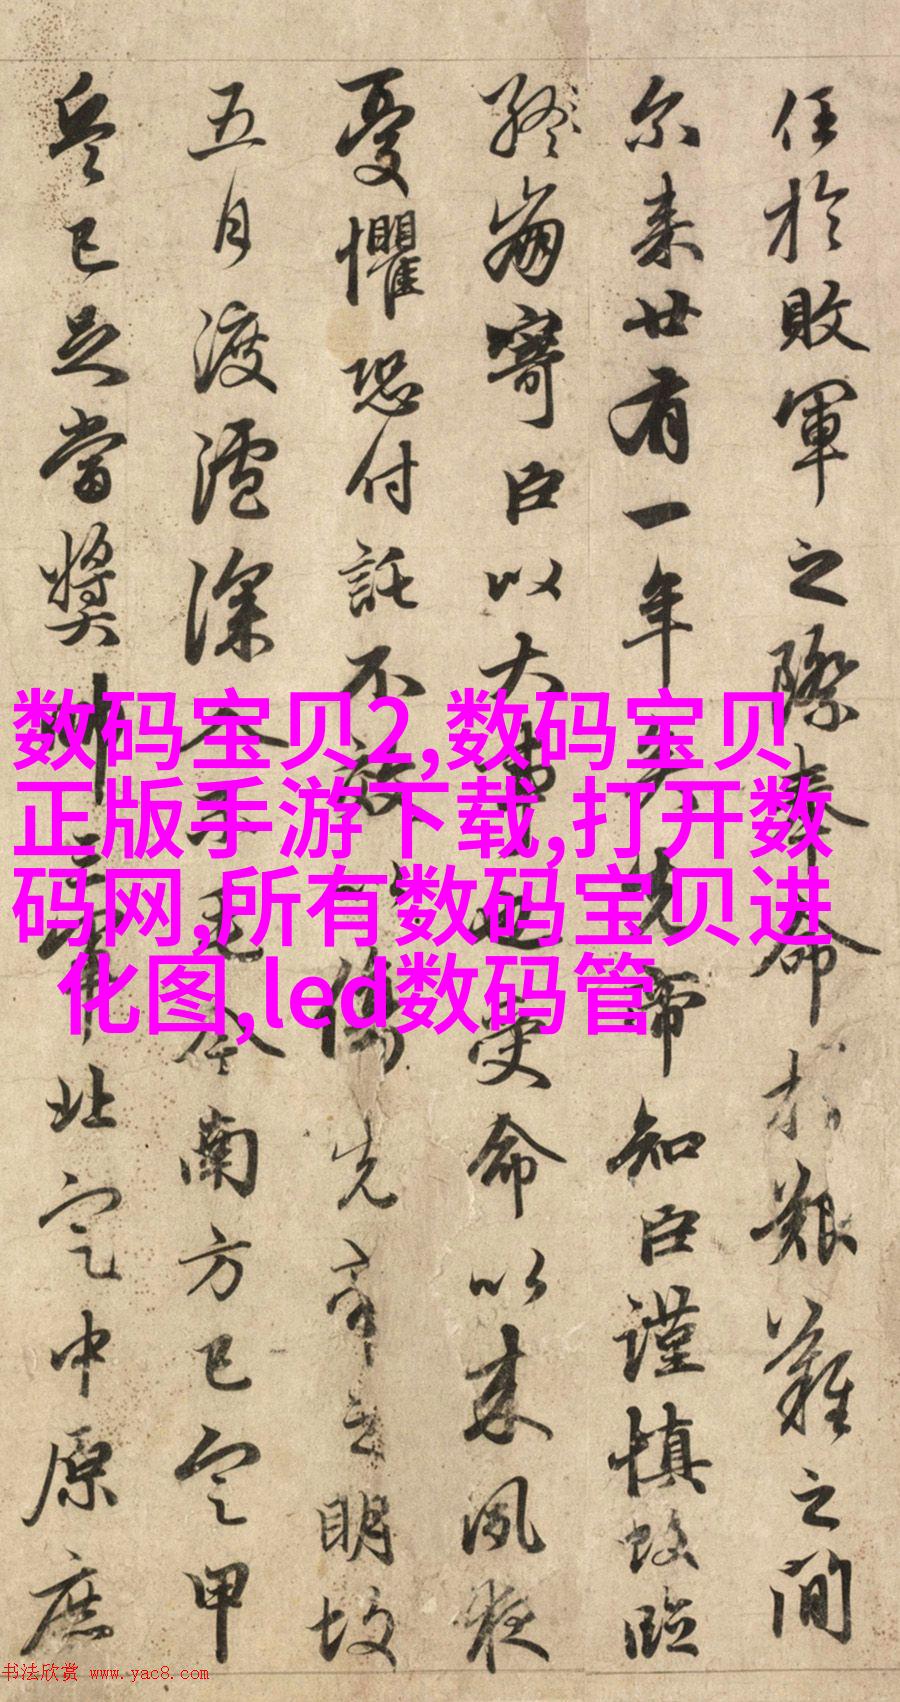 任於敗軍之際奉命於艱難之間
尔来廿有一年矣先帝知臣謹慎故臨
終崩寄臣以大事也受命以来夙夜
憂懼恐付託不效以傷先帝之明故
五月渡瀘深入不毛今南方已定甲
兵已足當獎帥三軍北定中原庶
数码宝贝2,数码宝贝
正版手游下载,打开数
码网,所有数码宝贝进
化图,led数码管
书法欣赏 www.yac8.com